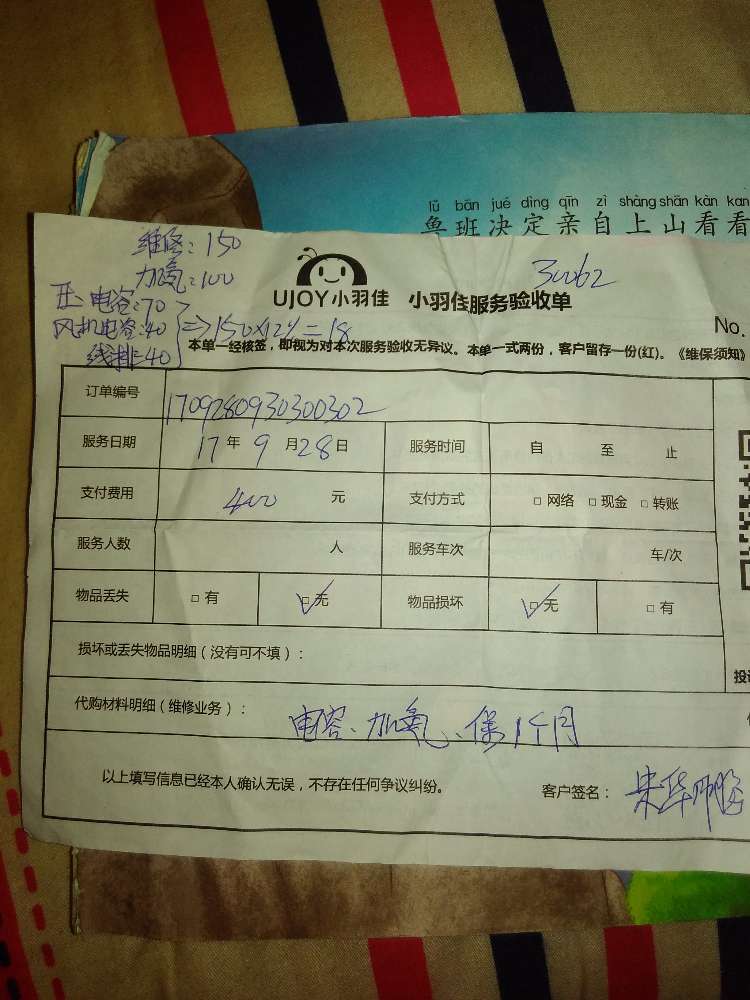 lǔ bān jué dìng qīn zì shàng shān kàn kan
鲁班决定亲自上山看看
维修:150
加氧:100
压:电容:70
风机电容:40 } => 150×12% = 18
线排:40
UJOY小羽佳 小羽佳服务验收单
No.
本单一经核签,即视为对本次服务验收无异议。本单一式两份,客户留存一份(红)。《维保须知》
订单编号 1709280930300302
服务日期 17年9月28日 服务时间 自 至 止
支付费用 400 元 支付方式 □ 网络 □ 现金 □ 转账
服务人数 人 服务车次 车/次
物品丢失 □ 有 ☑ 无 物品损坏 ☑ 无 □ 有
损坏或丢失物品明细(没有可不填):
代购材料明细(维修业务): 电容、加氧、保1个月
以上填写信息已经本人确认无误,不存在任何争议纠纷。 客户签名: